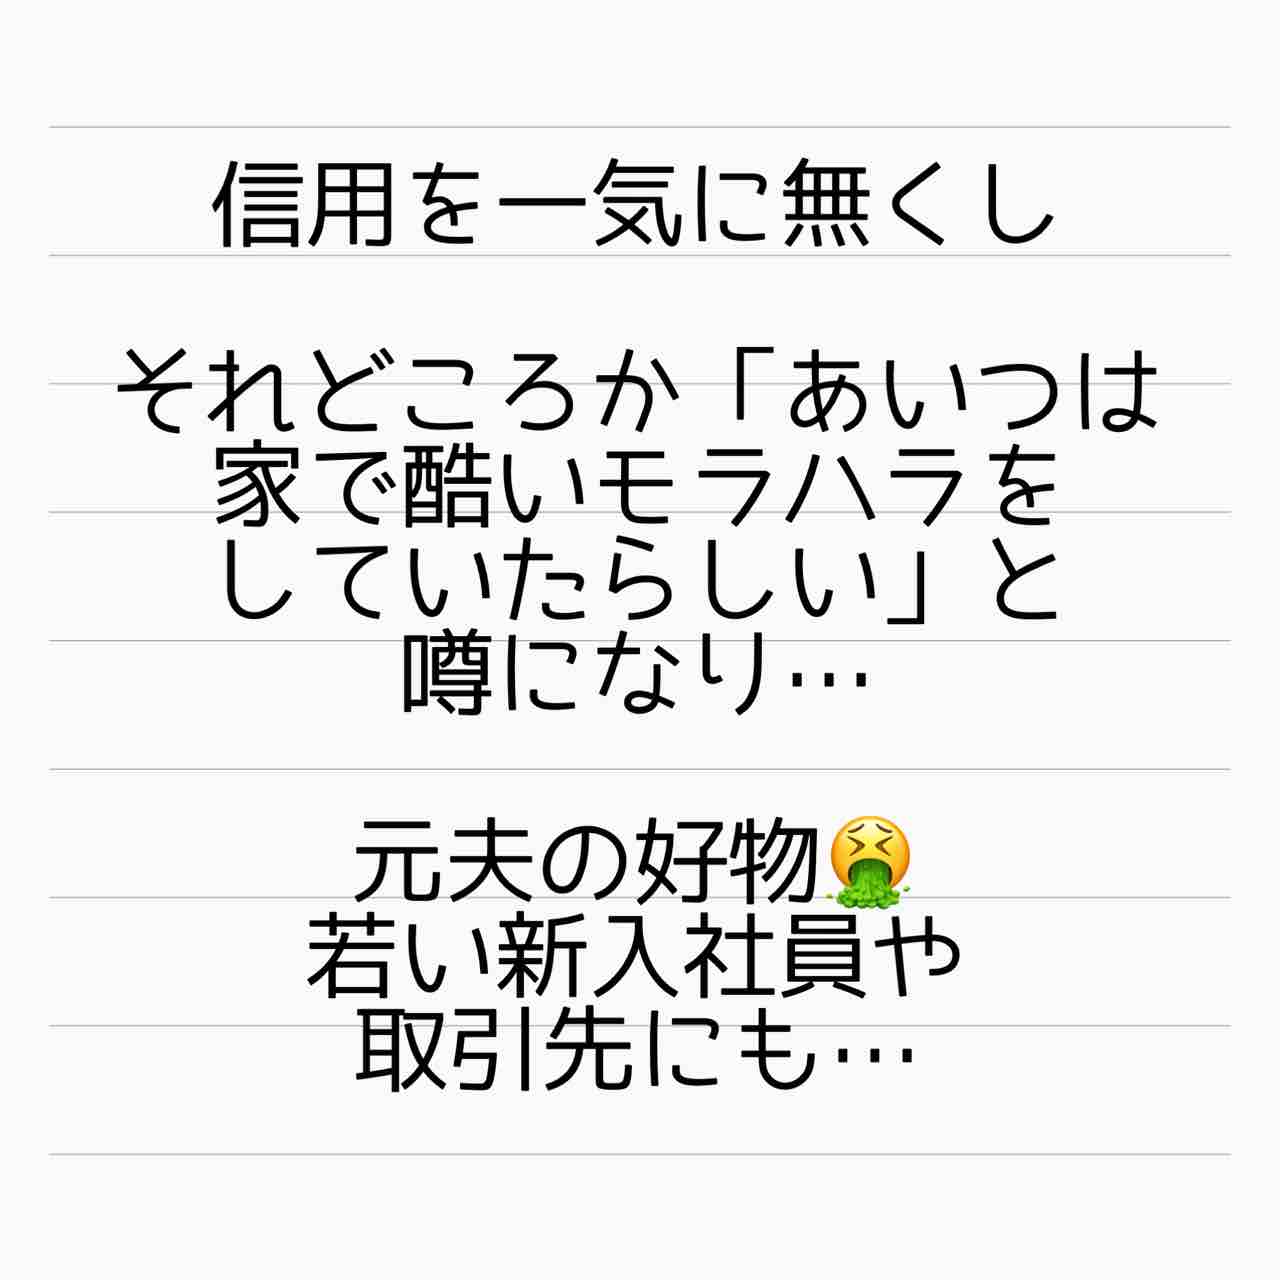 信用を一気に無くし
それどころか「あいつは
家で酷いモラハラを
していたらしい」と
噂になり…
元夫の好物🤮
若い新入社員や
取引先にも…